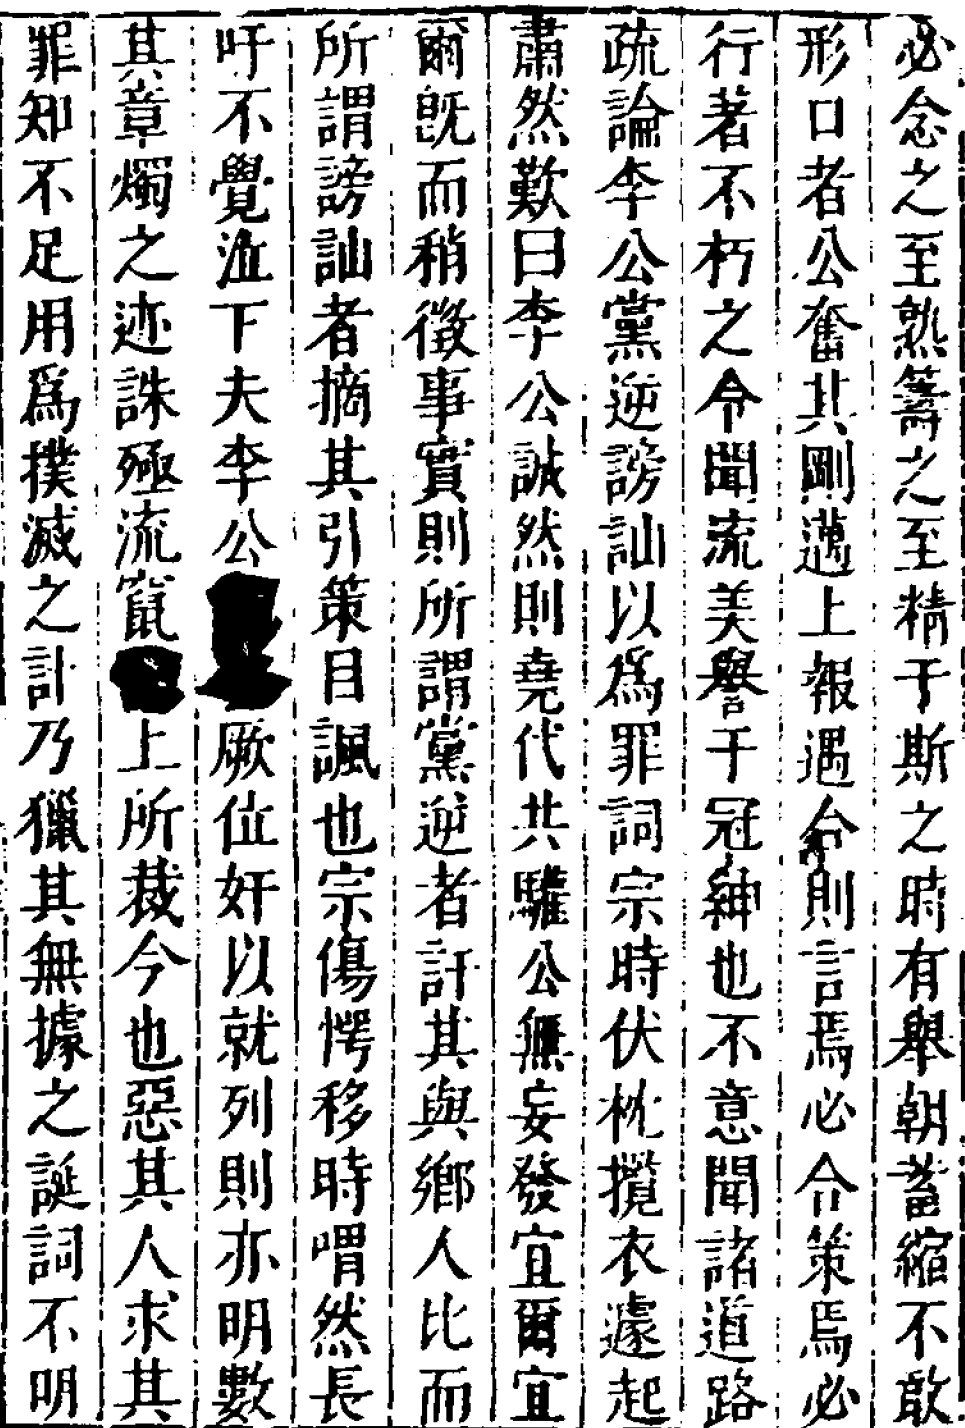 必念之至熟籌之至精于斯之時有舉朝蓄縮不敢
形口者公奮其剛邁上報遇合則言焉必合策焉必
行著不朽之令聞流美譽于冠紳也不意聞諸道路
疏論李公黨逆謗訕以為罪詞宗時伏枕攬衣遽起
肅然歎曰李公誠然則堯代共驩公無妄發宜爾宜
爾旣而稍徵事實則所謂黨逆者訐其與鄉人比而
所謂謗訕者摘其引策目諷也宗傷愕移時喟然長
吁不覺泣下夫李公厥位奸以就列則亦明數
其章燭之迹誅殛流竄上所裁今也惡其人求其
罪知不足用爲撲滅之計乃獵其無據之誕詞不明